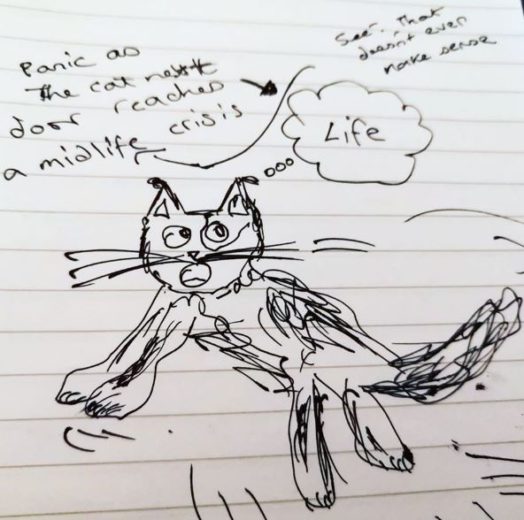 Panic as
the cat next
door reaches
a midlife crisis
See. That
doesn't even
make sense
Life